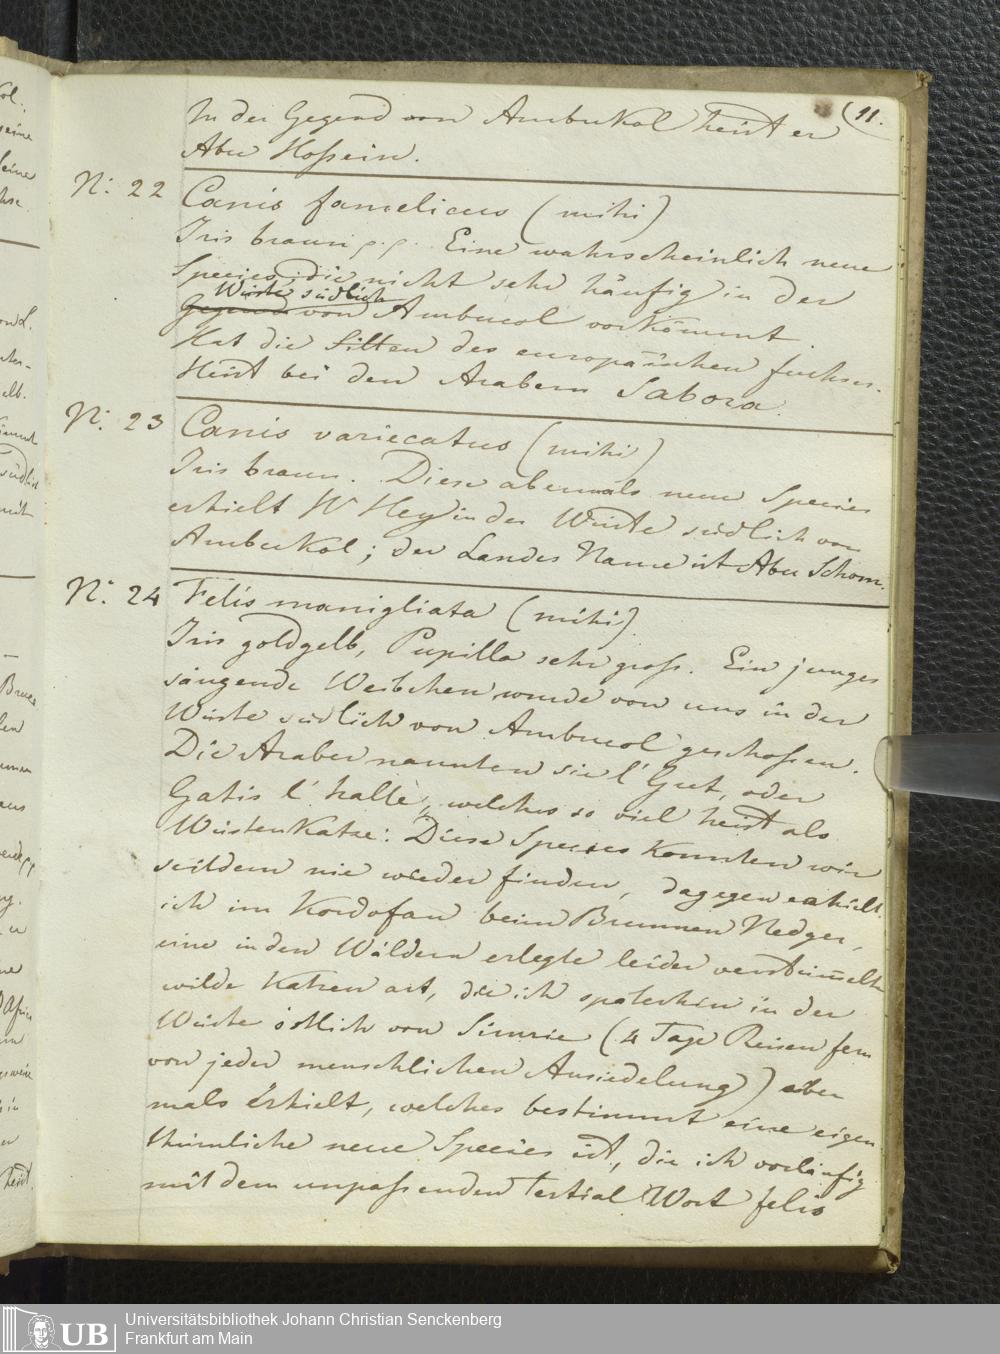 (11.
In der Gegend von Ambukol heist er
Abu Hossein.
N: 22 Canis famelicus (mihi)
Iris braun p.p. Eine wahrscheinlich neue
Species, die nicht sehr häufig in der
Wüste südlich
Gegend von Ambucol vorkömmt.
Hat die Sitten des europäischen fuchses.
Heist bei den Arabern Sabora.
N: 23 Canis variecatus (mihi)
Iris braun. Diese abermals neue Species
erhielt H Hey in der Wüste südlich von
Ambukol; der Landes Name ist Abu Schom.
N: 24 Felis manigliata (mihi)
Iris goldgelb, Pupilla sehr gross. Ein junges
säugende Weibchen wurde von uns in der
Wüste südlich von Ambucol geschossen.
Die Araber nannten sie l' Gut, oder
Gatis l' halle, welches so viel heist als
WüstenKatze: Diese Species konnten wir
seitdem nie wieder finden, dagegen erhielt
ich im Kordofan beim Brunnen Nedger,
eine in den Wäldern erlegte leider verstümelte
wilde Katzen art, die ich späterhin in der
Wüste östlich von Simrie (4 Tage Reisen fern
von jeder menschlichen Ansiedelung) aber
mals erhielt, welches bestimmt eine eigen
thümliche neue Species ist, die ich vorläufig
mit dem unpassenden Tertial Wort felis
UB
Universitätsbibliothek Johann Christian Senckenberg
Frankfurt am Main